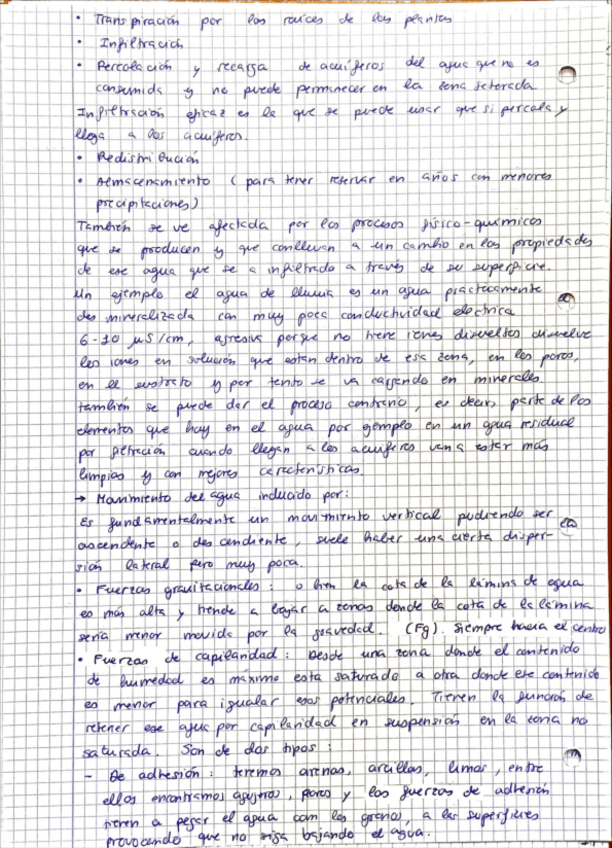 • Transpiración por las raíces de las plantas
• Infiltración
• Percolación y recarga de acuíferos del agua que no es
consumida y no puede permanecer en la zona saturada
Infiltración eficaz es la que se puede usar que si percola y
llega a los acuíferos.
• Redistribución
• Almacenamiento (para tener reservas en años con menores
precipitaciones)
También se ve afectada por los procesos físico-químicos
que se producen y que conllevan a un cambio en las propiedades
de ese agua que se a infiltrado a través de su superficie.
Un ejemplo el agua de lluvia es un agua prácticamente
des mineralizada con muy poca conductividad eléctrica
6-10 µS/cm, agresiva porque no tiene iones disueltos disuelve
los iones en solución que estan dentro de esa zona, en los poros,
en el sustrato y por tanto se va cargando en minerales.
también se puede dar el proceso contrario, es decir, parte de los
elementos que hay en el agua por ejemplo en un agua residual
por filtración cuando llegan a los acuíferos van a estar más
limpias y con mejores características.
→ Movimiento del agua inducido por:
Es fundamentalmente un movimiento vertical pudiendo ser
ascendente o descendiente, suele haber una cierta disper-
sión lateral pero muy poca.
• Fuerzas gravitacionales: o bien la cota de la lámina de agua
es más alta y tiende a bajar a zonas donde la cota de la lámina
sería menor movida por la gravedad. (Fg). Siempre hacia el centro
• Fuerzas de capilaridad: Desde una zona donde el contenido
de humedad es máximo esta saturado a otra donde ese contenido
es menor para igualar esos potenciales. Tienen la función de
retener ese agua por capilaridad en suspensión en la zona no
saturada. Son de dos tipos:
- De adhesión: tenemos arenas, arcillas, limos, entre
ellos encontramos agujeros, poros y las fuerzas de adhesión
tienen a pegar el agua con los granos, a las superficies
provocando que no siga bajando el agua.